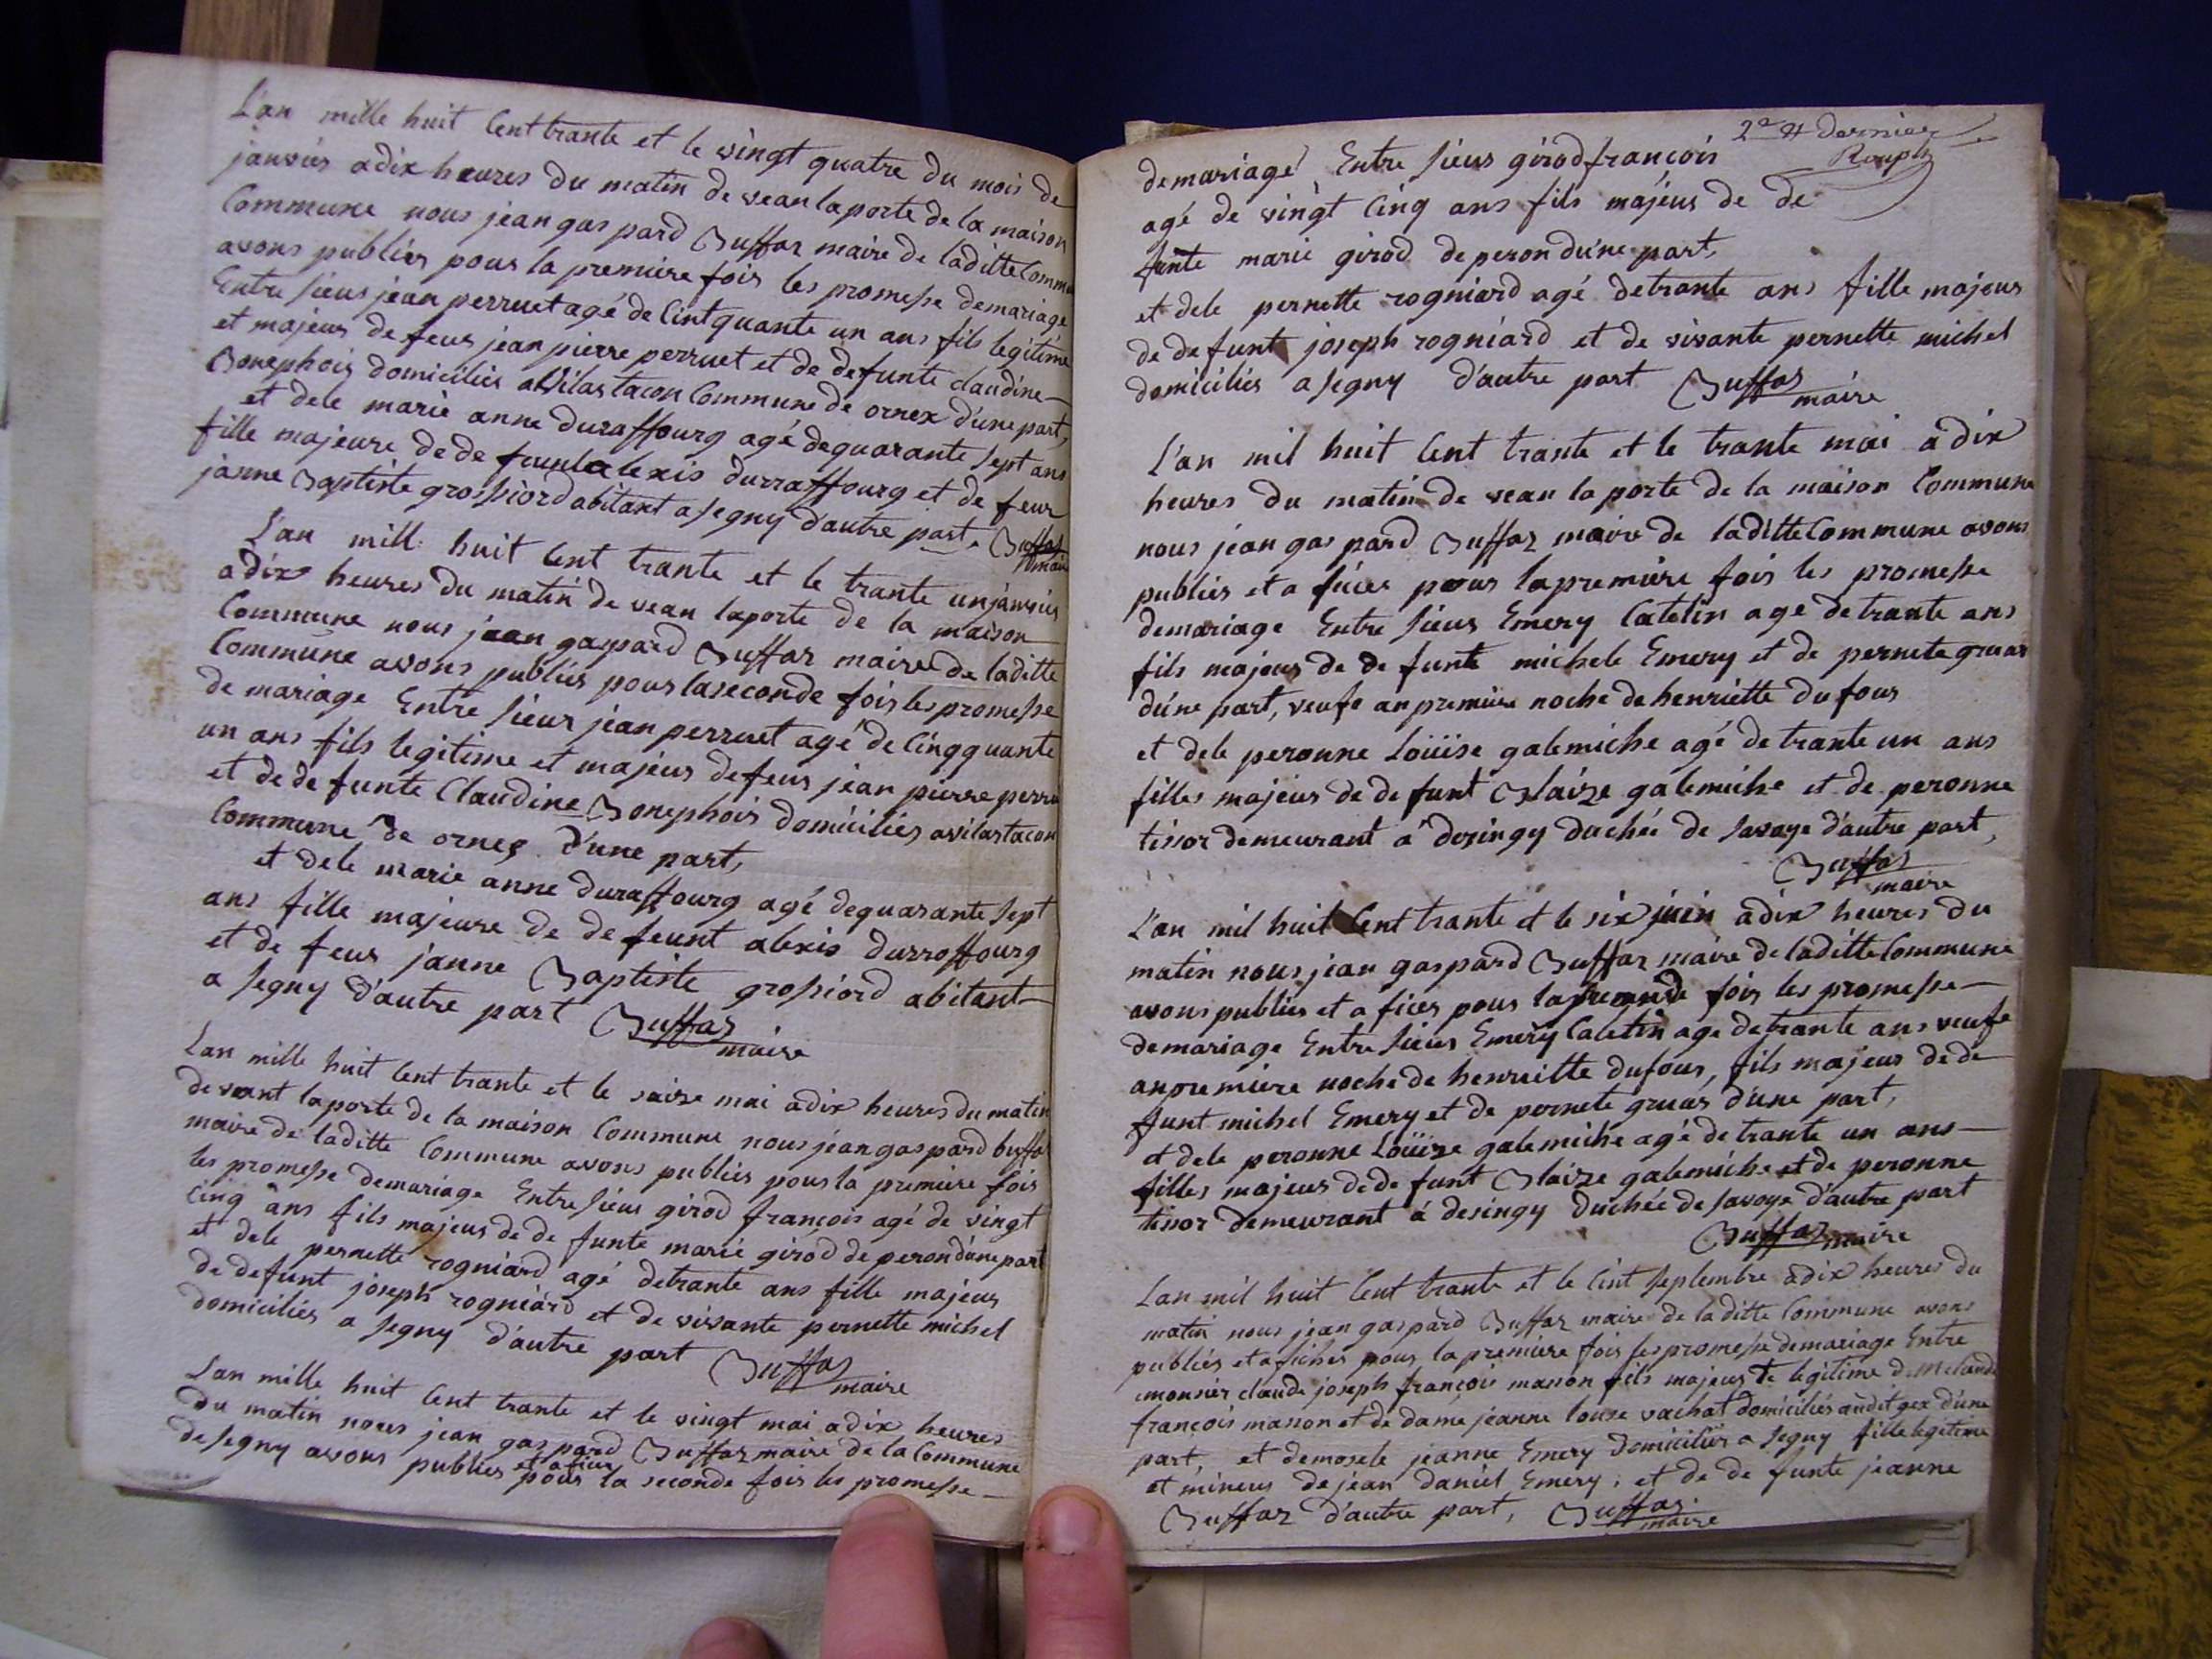 L'an mille huit Cent trante et le vingt quatre du mois de
janviér a dix heures du matin de vean la porte de la maison
Commune nous jean gas pard Buffaz maire de laditte Commu
avons publiés pour la premiere fois les promesse demariage
Entre sieur jean perruet agé de Cintquante un ans fils legitime
et majeur de feur jean pierre perruet et de defunte claudine
Bonephois domiciliés a Vilastacon Commune de ornex d'une part,
et dele marie anne duraffourg agé dequarante sept ans
fille majeure de de feunt alexis durraffourg et de feur
janne Baptiste grossiord abitant a segny d'autre part. Buffaz
maire
L'an mill huit Cent trante et le trante unjanviér
a dix heures du matin de vean laporte de la maison
Commune nous jean gaspard Buffaz maire de laditte
Commune avons publiés pour laseconde fois les promesse
de mariage Entre sieur jean perruet agé de Cingquante
un ans fils legitime et majeur defeur jean pierre perru
et de de funte Claudine Bonephois domiciliés avilastacon
Commune de ornex d'une part,
et dele marie anne duraffourg agé dequarante sept
ans fille majeure de de feunt alexis durroffourg
et de feur janne Baptiste grossiord abitant
a segny d'autre part Buffaz
maire
Lan mille huit Cent trante et le saize mai adix heures du matin
devant laporte de la maison Commune nous jean gaspard buffa
maire de laditte Commune avons publiés pour la premiere fois
les promesse demariage Entre sieur girod françois agé de vingt
Cinq ans fils majeur de de funte marie girod de peron dúne part
et dele pernette rogniard agé detrante ans fille majeur
de defunt joseph rogniard et de vivante pernette michel
domiciliés a segny d'autre part Buffaz
maire
Lan mille huit Cent trante et le vingt mai adix heures
du matin nous jean gaspard Buffaz maire de la Commune
de segny avons publiés et a ficer pour la seconde fois les promesse
2e et dernier
demariage Entre sieur girod françois
agé de vingt Cinq ans fils májeur de de
funte marie girod de peron dúne part,
et dele pernette rogniard agé detrante ans fille majeur
de defunt joseph rogniard et de vivante pernette michel
domiciliés a segny d'autre part Buffaz
maire
L'an mil huit Cent trante et le trante mai a dix
heures du matin de vean la porte de la maison Commune
nous jean gas pard Buffaz maire de laditte Commune avons
publiés et a ficer pour lapremiére fois les promesse
demariage Entre sieur Emery Catelin age de trante ans
fils majeur de de funt michele Emery et de pernete gruaz
dúne part, veufe an premiére noche de henriette du four
et dele peronne Loüise galemiche agé de trante un ans
filles majeur de de funt Blaize galemiche et de peronne
tissor demeurant á desingy duchée de savoye d'autre part,
Buffaz
maire
L'an mil huit Cent trante et le six juin adix heures du
matin nous jean gaspard Buffaz maire de laditte Commune
avons publiés et a ficer pour la seconde fois les promesse
demariage Entre sieur Emery Catelin age de trante ans veufe
anpremiére noche de henriette dufour, fils majeur de de
funt michel Emery et de pernete gruaz d'une part,
et dele peronne Loüize galemiche agé de trante un ans
filles majeur de de funt Blaize galemiche et de peronne
tissor demeurant á desingy duchée de savoye d'autre part
Buffaz maire
Lan mil huit Cent trante et le Cint septembre adix heures du
matin nous jean gaspard Buffaz maire de laditte Commune avons
publiés et afichés pour la premiere fois les promesse demariage Entre
monsiér claude joseph françois manon fils majeur et legitime de
françois manon et de dame jeanne louse vachat domiciliés audit gex d'une
part, et demosele jeanne Emery domiciliés a segny fille legitime
et mineur de jean daniel Emery, et de de funte jeanne
Buffaz d'autre part, Buffaz
maire